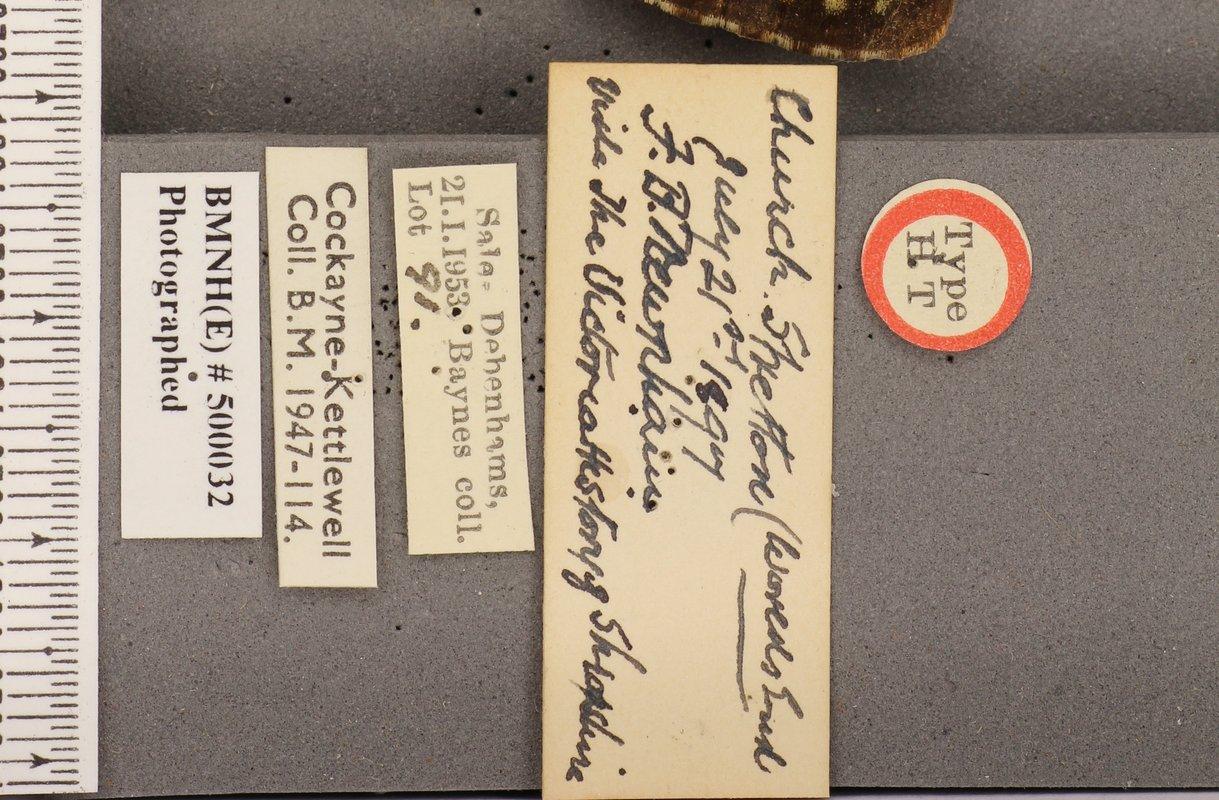 Type
H.T
Church. Stretton (Woreds End
July 21st 1897
F. B. Newnham
vide The Victoria History of Shropshire
Sale- Debenhams,
21.1.1953. Baynes coll.
Lot 91.
Cockayne-Kettlewell
Coll. B.M. 1947-114.
BMNH(E) # 500032
Photographed